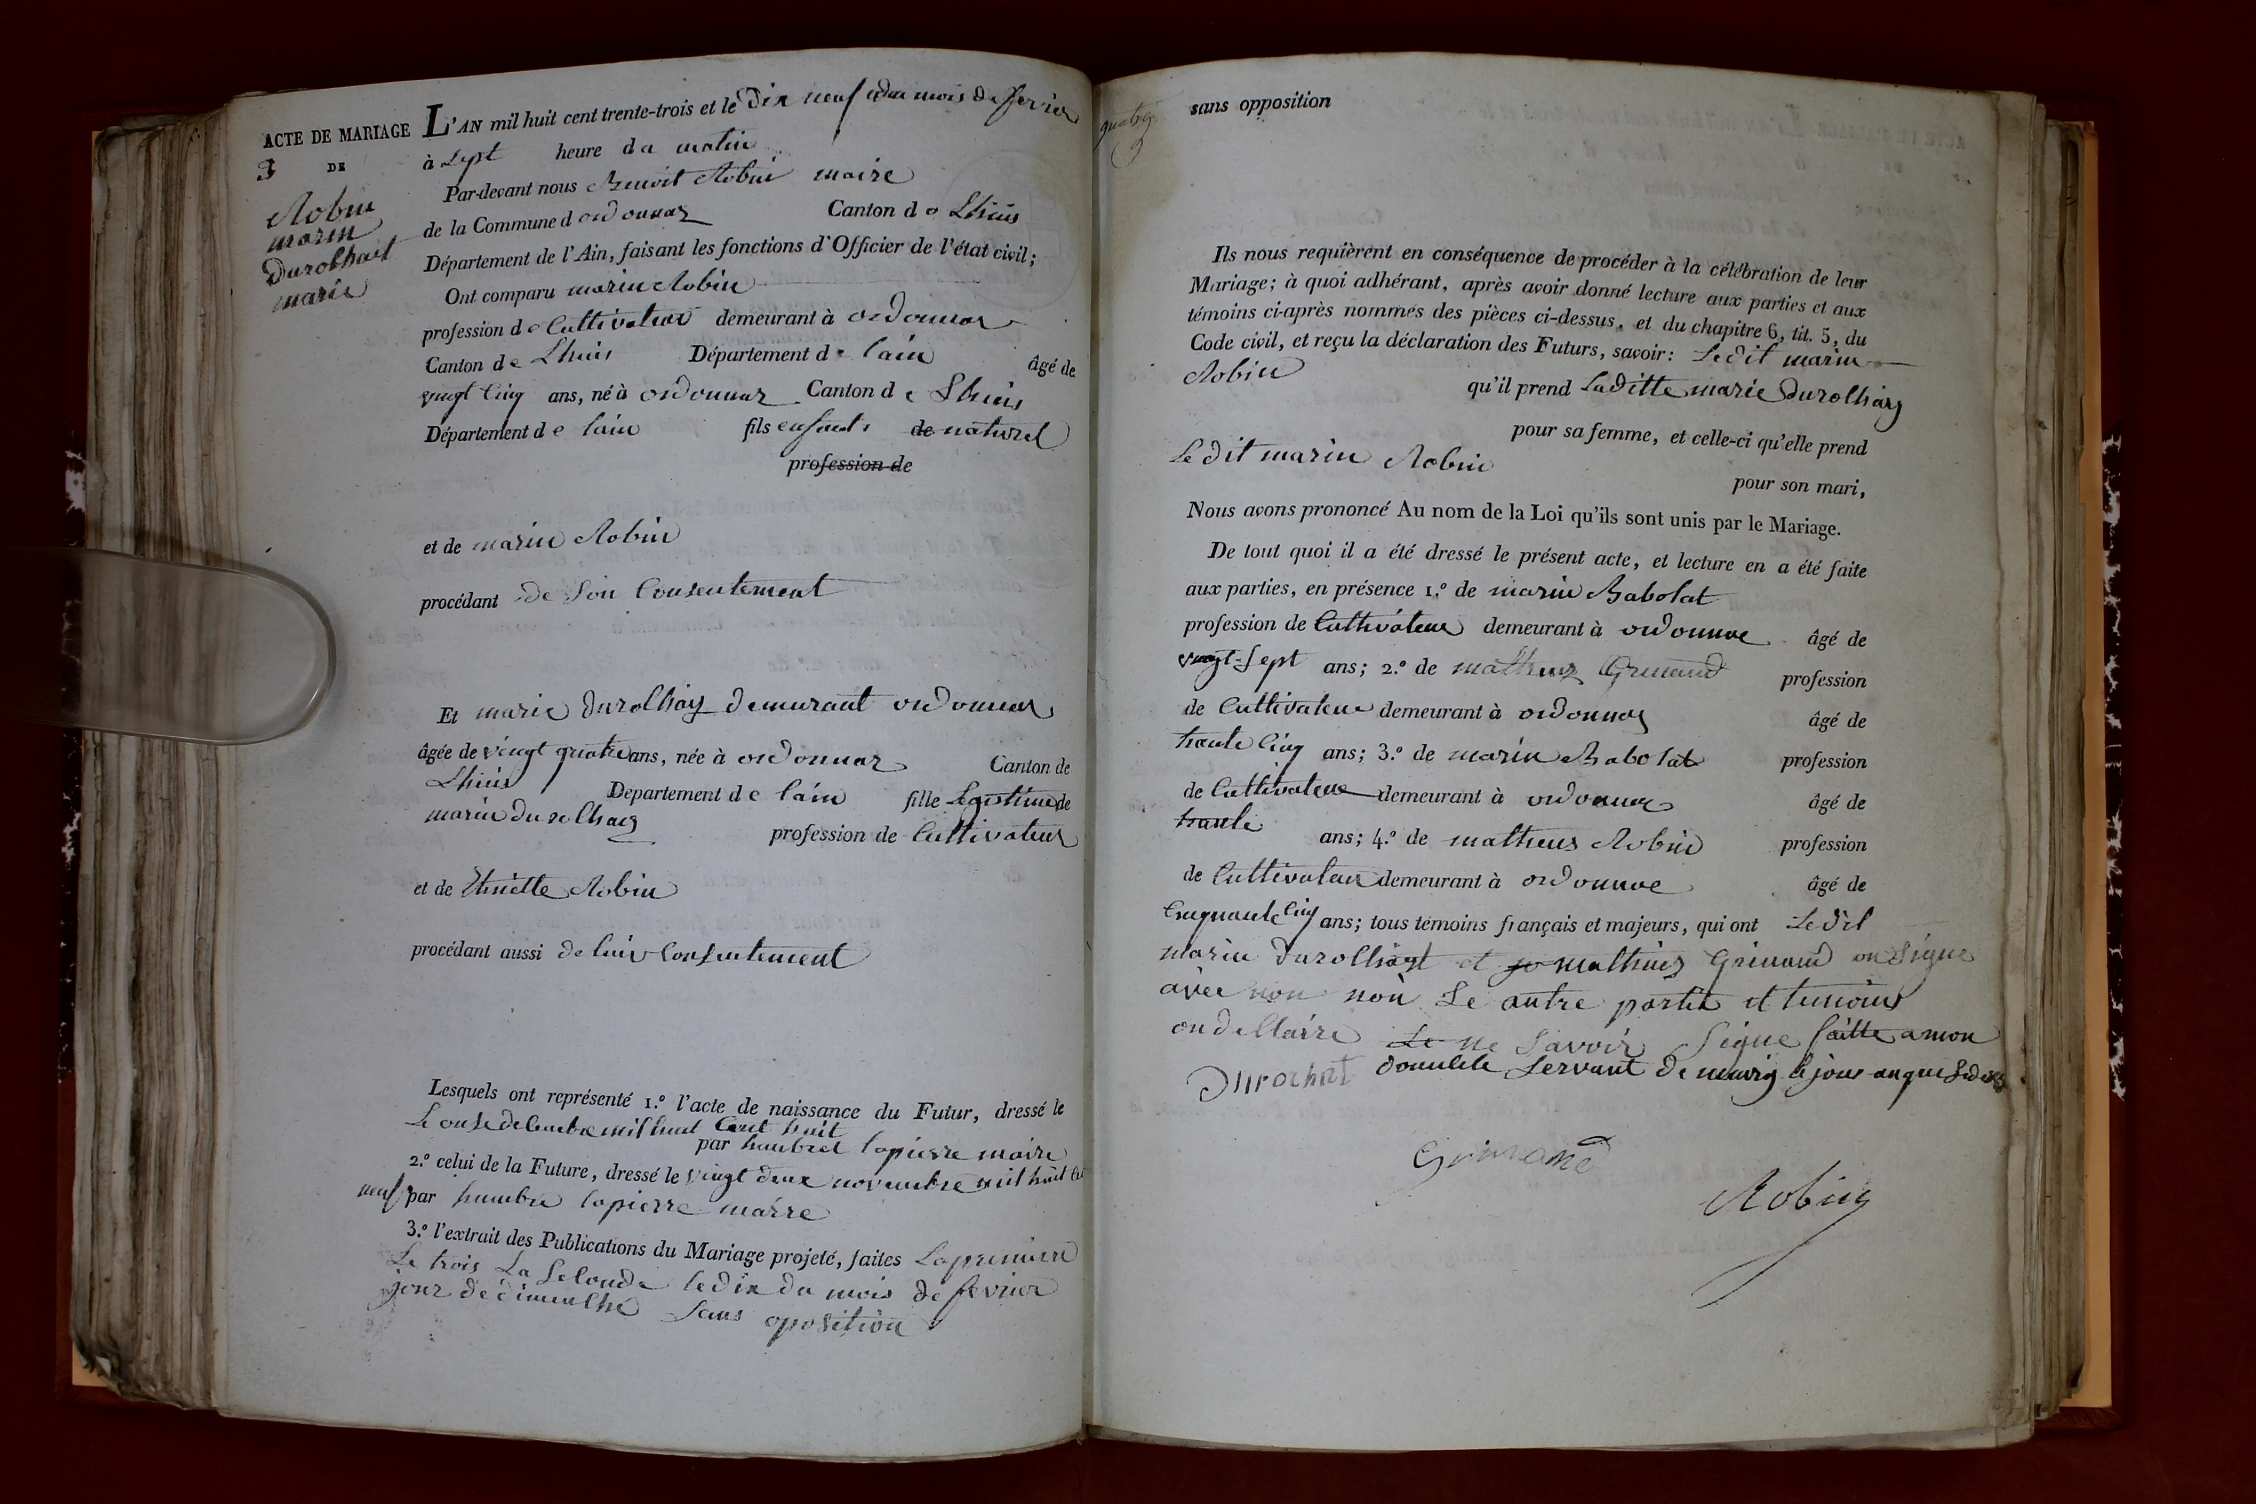 ACTE DE MARIAGE L'AN mil huit cent trente-trois et le Dix neuf du mois de fevrier
3 DE
Robin
marin
Durochat
marie
à Sept heure du matin
Par-devant nous Benoit Robin maire
de la Commune d ordonnaz Canton de Lhuis
Département de l'Ain, faisant les fonctions d'Officier de l'état civil;
Ont comparu marin Robin
profession de Cultivateur demeurant à ordonnaz
Canton de Lhuis Département de lain âgé de
vingt Cinq ans, né à ordonnaz Canton de Lhuis
Département de lain fils enfant de naturel
profession de
et de marin Robin
procédant de Son Consentement
Et marie durolhay demurant ordonnaz
âgée de vingt quatre ans, née à ordonnaz Canton de
Lhuis Departement de lain fille Legitime de
marin durolhaz profession de Cultivateur
et de Etiniette Robin
procédant aussi de luir Consentement
Lesquels ont représenté 1.º l'acte de naissance du Futur, dressé le
Le onse decembre mil huit Cent huit
par humbret lapierre maire
2.º celui de la Future, dressé le vingt deux novembre mil huit Cent
neuf par humbre lapierre marre
3.º l'extrait des Publications du Mariage projeté, faites La premiere
Le trois La Seconde le dix du mois de fevrier
jour de dimenche Sans oposition
sans opposition
Ils nous requièrent en conséquence de procéder à la célébration de leur
Mariage; à quoi adhérant, après avoir donné lecture aux parties et aux
témoins ci-après nommés des pièces ci-dessus, et du chapitre 6, tit. 5, du
Code civil, et reçu la déclaration des Futurs, savoir: Le dit marin
Robin qu'il prend Laditte marie Durolhay
pour sa femme, et celle-ci qu'elle prend
Le dit marin Robin
pour son mari,
Nous avons prononcé Au nom de la Loi qu'ils sont unis par le Mariage.
De tout quoi il a été dressé le présent acte, et lecture en a été faite
aux parties, en présence 1.º de marin Babolat
profession de Cultivateur demeurant à ordonnaz âgé de
vingt-Sept ans; 2.º de matheuz Grinand profession
de Cultivateur demeurant à ordonnaz âgé de
trante Cinq ans; 3.º de marin Babolat profession
de Cultivateur demeurant à ordonnaz âgé de
trante ans; 4.º de matheus Robin profession
de Cultivateur demeurant à ordonnaz âgé de
Cinquante Cinq ans; tous témoins français et majeurs, qui ont Le dit
marin durolhayt et mathuis Grinand on Signe
avec nou Le autre partit et temoins
on declaire Le ne Savoir Signe faitte a mon
domicile Servant de mairy le jour an que dessus
Durochat
Grinand
Robin